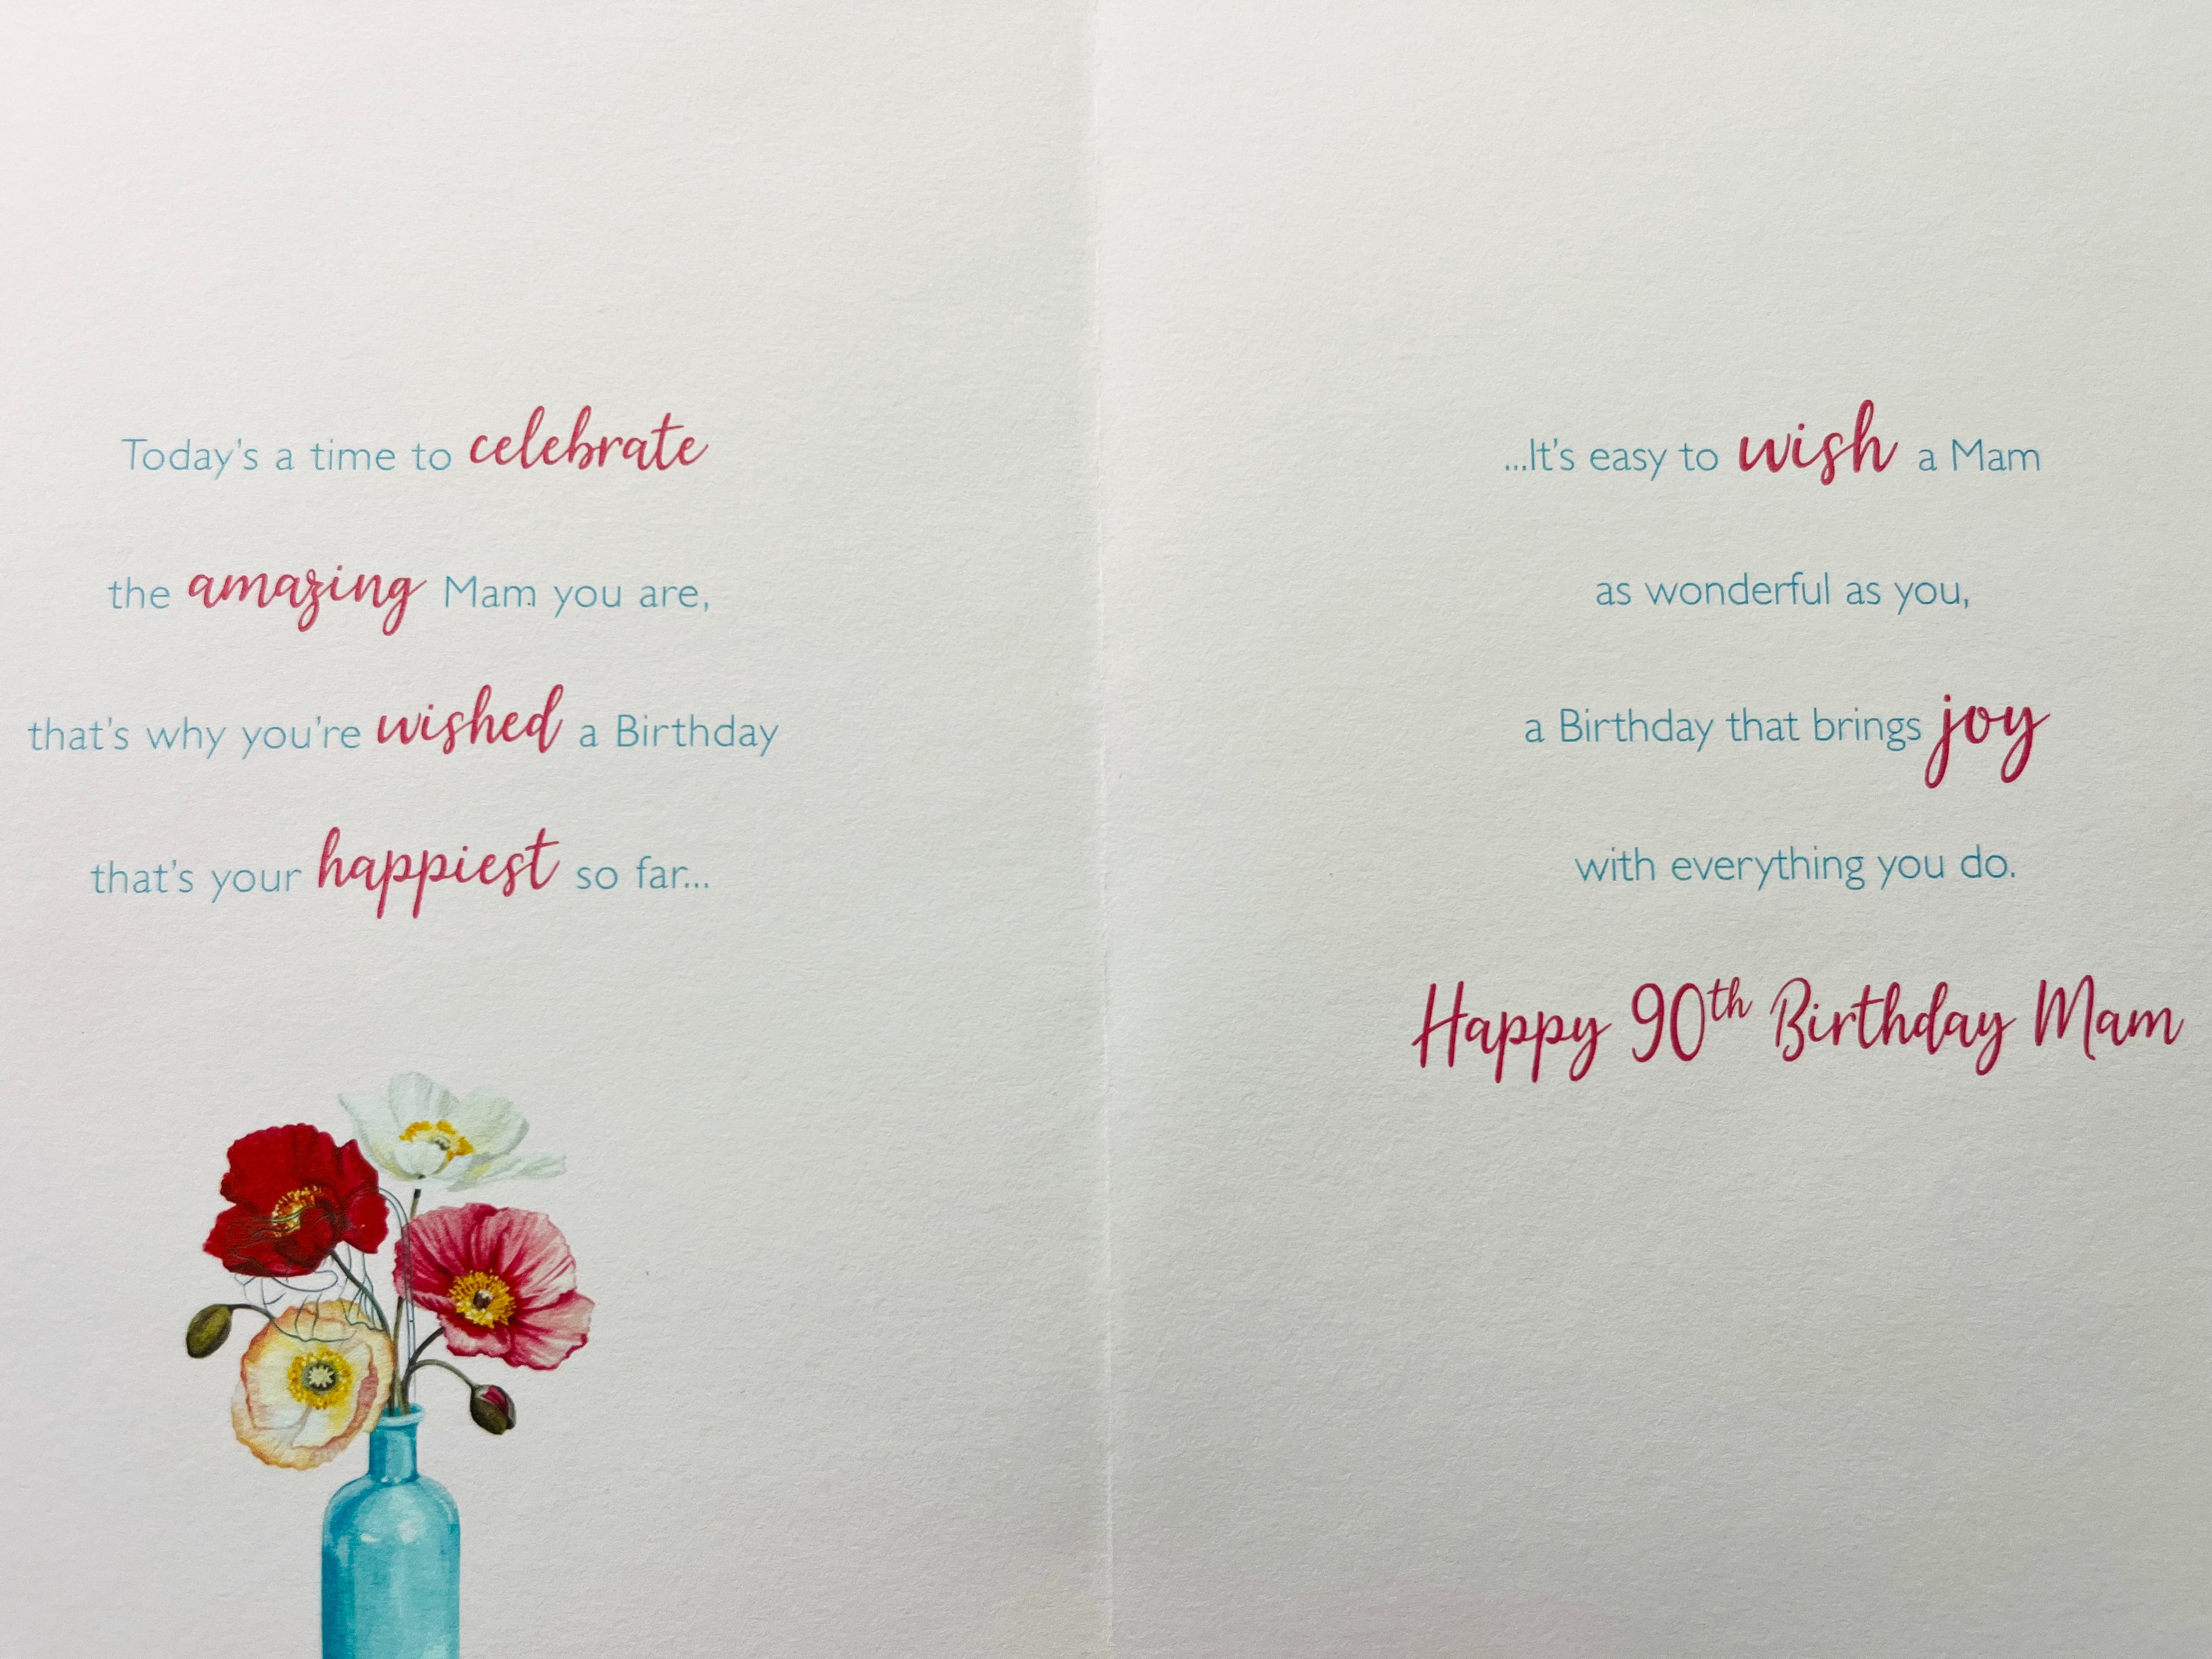 Today's a time to celebrate
the amazing Mam you are,
that's why you're wished a Birthday
that's your happiest so far...
...It's easy to wish a Mam
as wonderful as you,
a Birthday that brings joy
with everything you do.
Happy 90th Birthday Mam